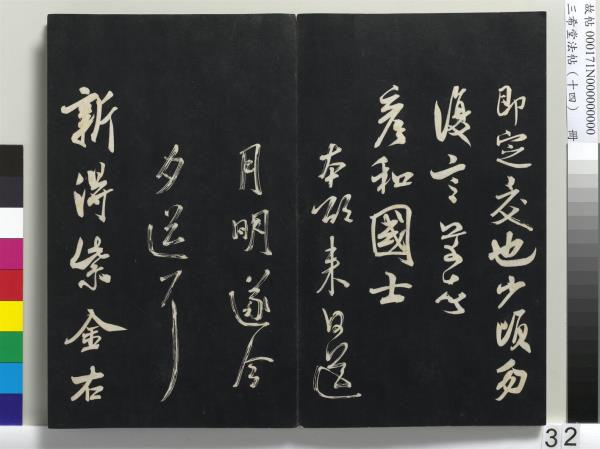 即定交也少頃勿
復言芾頓首
彥和國士
本欲來日送
月明遂今
夕送耳
新得紫金右
故帖 000171N000000000
三希堂法帖（十四） 冊
32